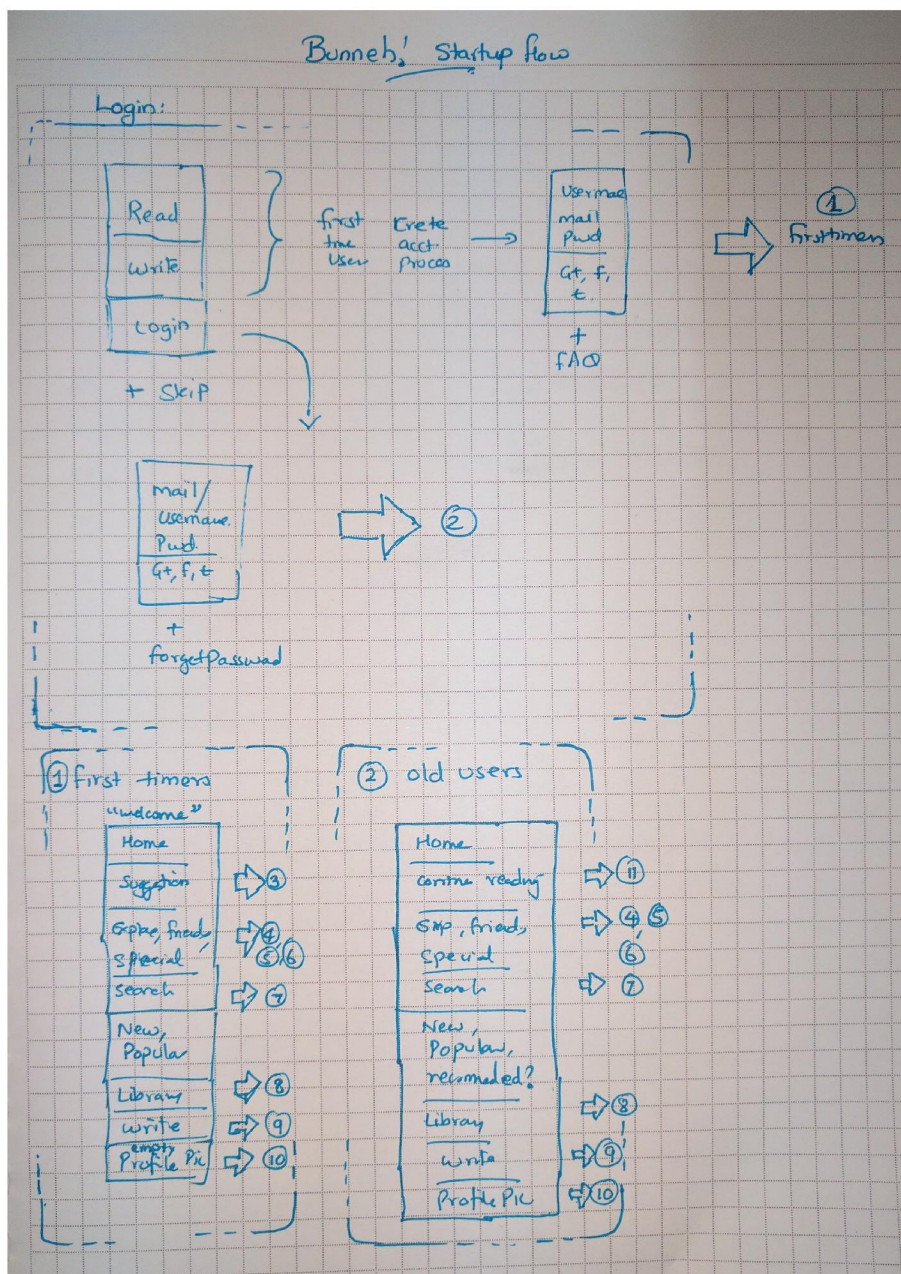 Bunneh! Startup flow
Login:
Read
Write
Login
+ Skip
first
time
User
Crete
acct.
Proces
Usermae
mail
Pwd
G+, f,
t.
+
FAQ
1
firsttimers
mail/
Username.
Pwd.
G+, f, t
+
forgetPassward
2
1 first timers
"welcome"
Home
Suggestion
3
friends,
Special
4
5,6
Search
7
New,
Popular
Library
8
write
9
empty
Profile Pic
10
2 old users
Home
reading
11
friends,
Special
4, 5
6
Search
7
New,
Popular,
recommeded?
Library
8
Write
9
Profile Pic
10